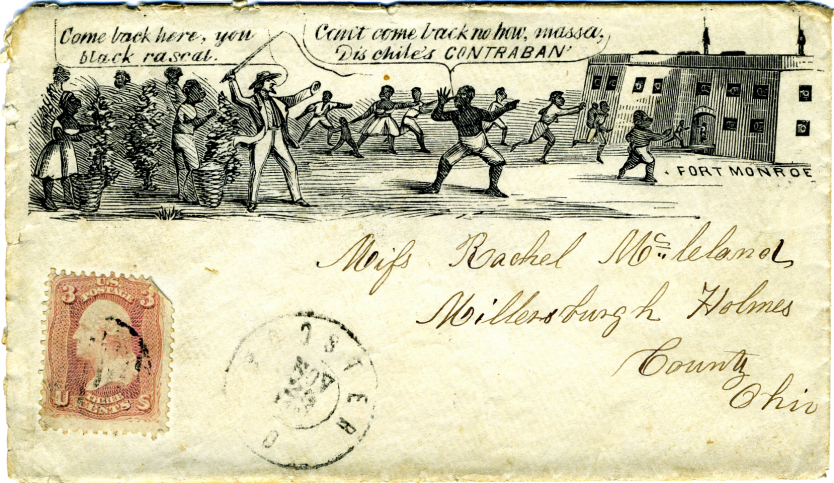 Come back here, you
black rascal.
Can't come back no how, massa,
Dis chile's CONTRABAN'
FORT MONROE
Miss Rachel McCleland
Millersburgh Holmes
County
Ohio
3 U.S. 3
POSTAGE
THREE
U CENTS S
WOOSTER
NOV
O